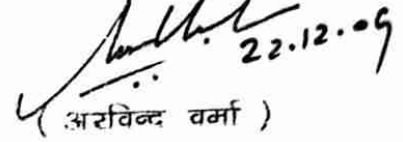 22.12.09
( अरविन्द वर्मा )